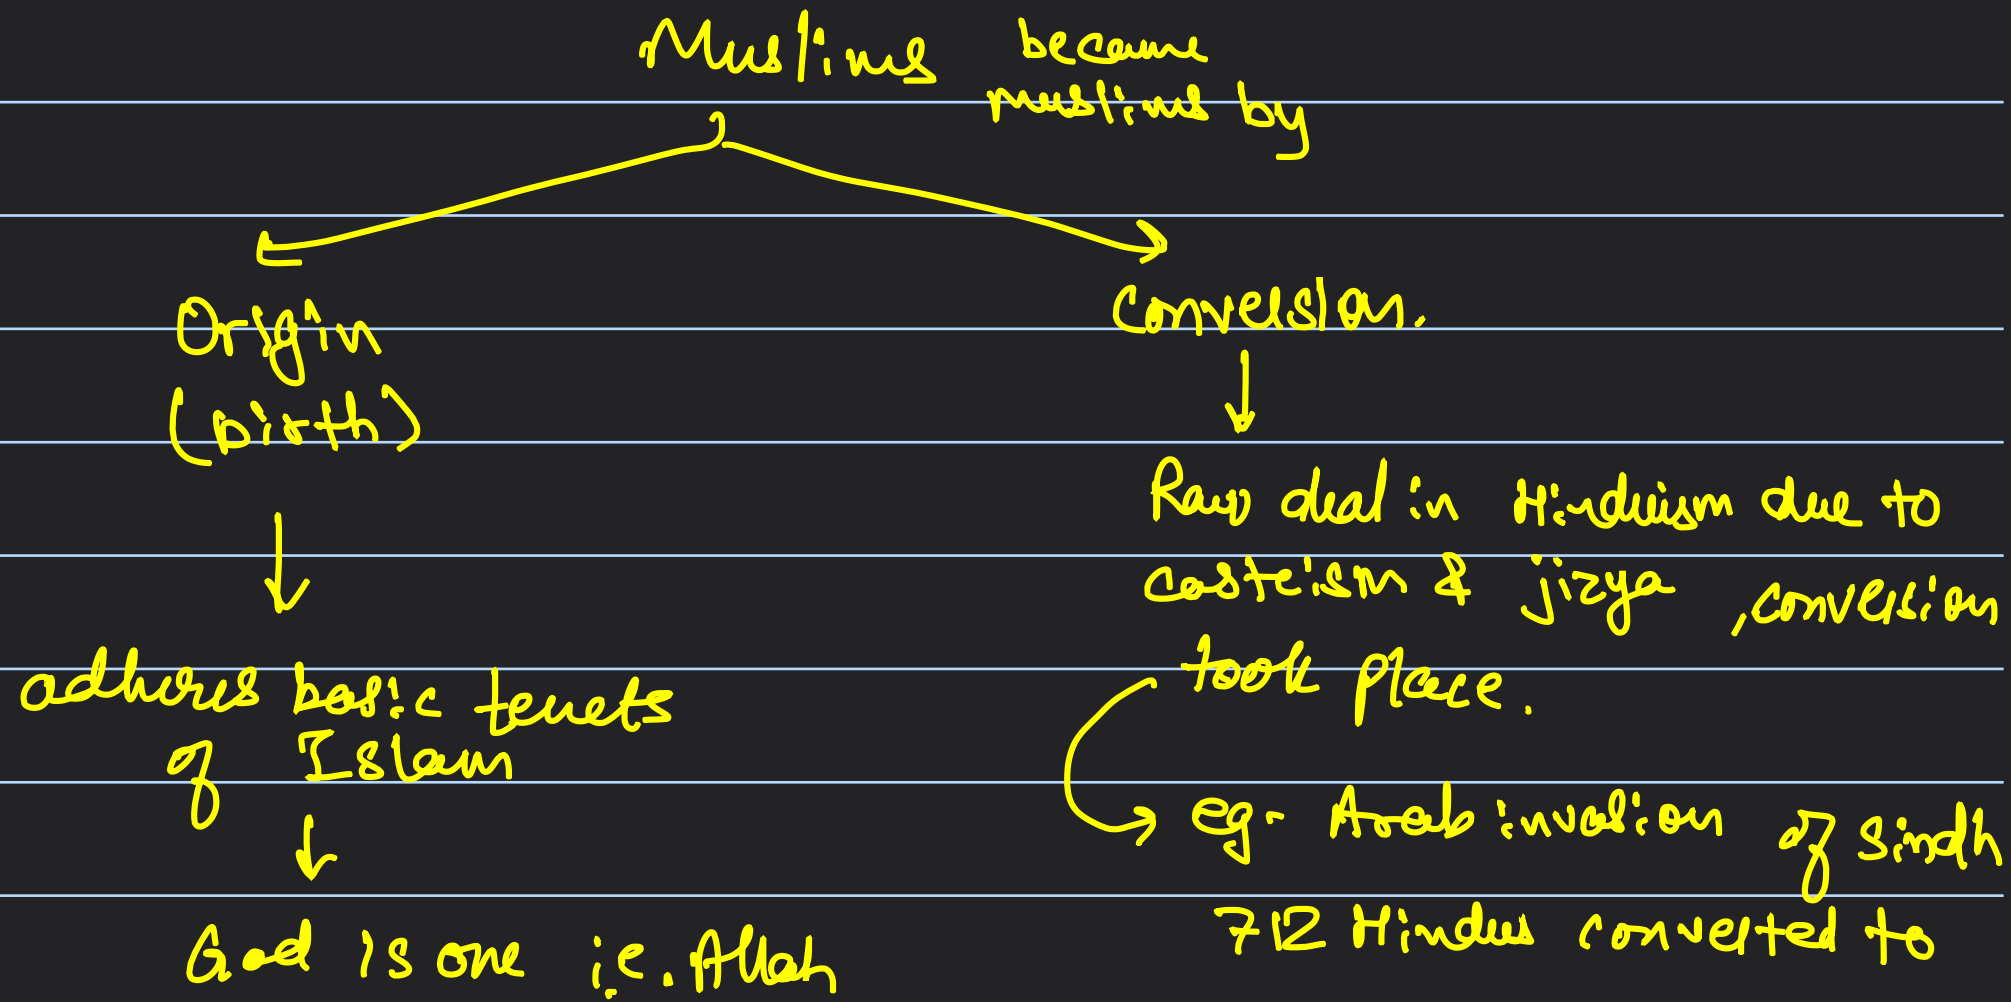 Muslims became
muslims by
Origin
(birth)
adheres basic tenets
of Islam
God is one i.e. Allah
Conversion.
Raw deal in Hinduism due to
casteism & jizya, conversion
took place.
eg- Arab invasion of Sindh
712 Hindus converted to